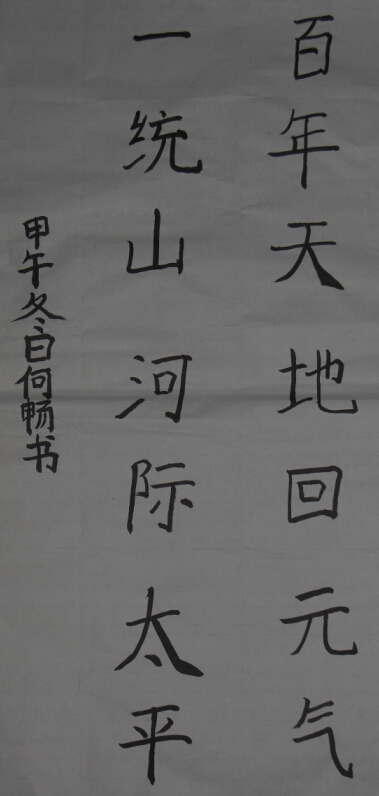 百年天地回元气
一统山河际太平
甲午冬白何畅书